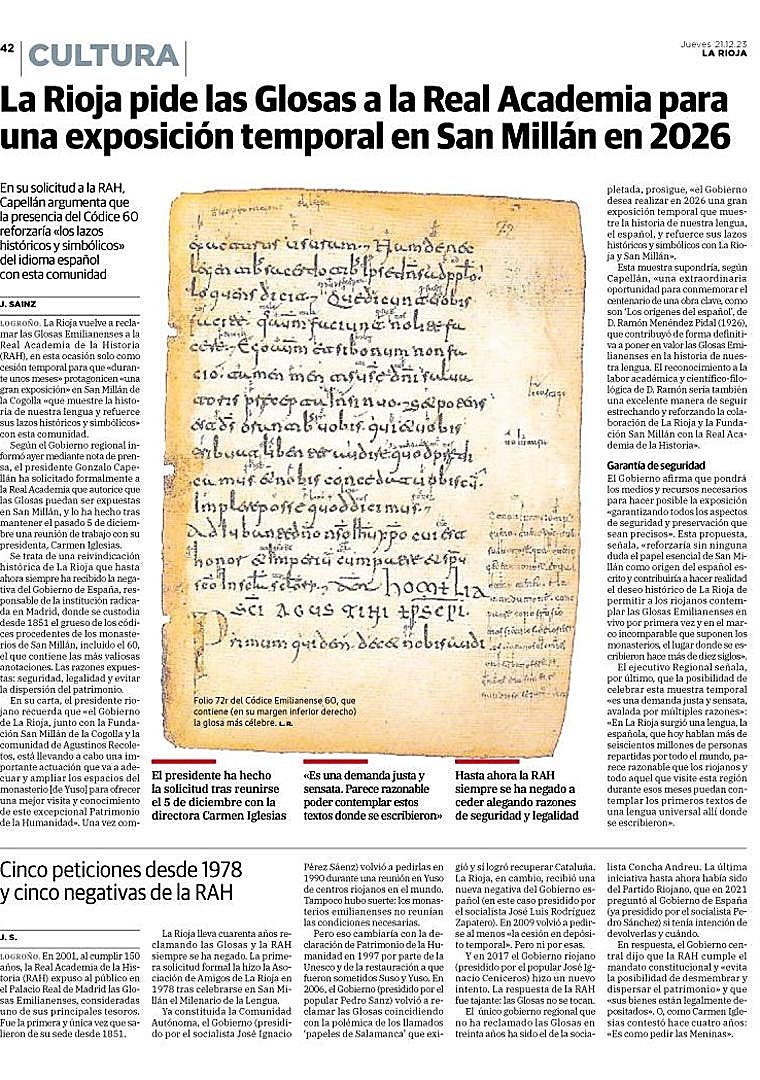 42
CULTURA
Jueves 21.12.23
LA RIOJA
La Rioja pide las Glosas a la Real Academia para
una exposición temporal en San Millán en 2026
En su solicitud a la RAH,
Capellán argumenta que
la presencia del Códice 60
reforzaría «los lazos
históricos y simbólicos»
del idioma español
con esta comunidad
J. SAINZ
LOGROÑO. La Rioja vuelve a recla-
mar las Glosas Emilianenses a la
Real Academia de la Historia
(RAH), en esta ocasión solo como
cesión temporal para que «duran-
te unos meses» protagonicen «una
gran exposición» en San Millán de
la Cogolla «que muestre la histo-
ria de nuestra lengua y refuerce
sus lazos históricos y simbólicos»
con esta comunidad.
Según el Gobierno regional in-
formó ayer mediante nota de pren-
sa, el presidente Gonzalo Cape-
llán ha solicitado formalmente a
la Real Academia que autorice que
las Glosas puedan ser expuestas
en San Millán, y lo ha hecho tras
mantener el pasado 5 de diciem-
bre una reunión de trabajo con su
presidenta, Carmen Iglesias.
Se trata de una reivindicación
histórica de La Rioja que hasta
ahora siempre ha recibido la nega-
tiva del Gobierno de España, res-
ponsable de la institución radica-
da en Madrid, donde se custodia
desde 1851 el grueso de los códi-
ces procedentes de los monaste-
rios de San Millán, incluido el 60,
el que contiene las más valiosas
anotaciones. Las razones expues-
tas: seguridad, legalidad y evitar
la dispersión del patrimonio.
En su carta, el presidente rio-
jano recuerda que «el Gobierno
de La Rioja, junto con la Funda-
ción San Millán de la Cogolla y la
comunidad de Agustinos Recole-
tos, está llevando a cabo una im-
portante actuación que va a ade-
cuar y ampliar los espacios del
monasterio [de Yuso] para ofrecer
una mejor visita y conocimiento
de este excepcional Patrimonio
de la Humanidad». Una vez com-
Folio 72r del Códice Emilianense 60, que
contiene (en su margen inferior derecho)
la glosa más célebre. L.R.
El presidente ha hecho
la solicitud tras reunirse
el 5 de diciembre con la
directora Carmen Iglesias
«Es una demanda justa y
sensata. Parece razonable
poder contemplar estos
textos donde se escribieron»
Hasta ahora la RAH
siempre se ha negado a
ceder alegando razones
de seguridad y legalidad
pletada, prosigue, «el Gobierno
desea realizar en 2026 una gran
exposición temporal que mues-
tre la historia de nuestra lengua,
el español, y refuerce sus lazos
históricos y simbólicos con La Rio-
ja y San Millán».
Esta muestra supondría, según
Capellán, «una extraordinaria
oportunidad para conmemorar el
centenario de una obra clave, como
son 'Los orígenes del español', de
D. Ramón Menéndez Pidal (1926),
que contribuyó de forma definiti-
va a poner en valor las Glosas Emi-
lianenses en la historia de nues-
tra lengua. El reconocimiento a la
labor académica y científico-filo-
lógica de D. Ramón sería también
una excelente manera de seguir
estrechando y reforzando la cola-
boración de La Rioja y la Funda-
ción San Millán con la Real Aca-
demia de la Historia».
Garantía de seguridad
El Gobierno afirma que pondrá
los medios y recursos necesarios
para hacer posible la exposición
«garantizando todos los aspectos
de seguridad y preservación que
sean precisos». Esta propuesta,
señala, «reforzaría sin ninguna
duda el papel esencial de San Mi-
llán como origen del español es-
crito y contribuiría a hacer realidad
el deseo histórico de La Rioja de
permitir a los riojanos contem-
plar las Glosas Emilianenses en
vivo por primera vez y en el mar-
co incomparable que suponen los
monasterios, el lugar donde se es-
cribieron hace más de diez siglos».
El ejecutivo Regional señala,
por último, que la posibilidad de
celebrar esta muestra temporal
«es una demanda justa y sensata,
avalada por múltiples razones»:
«En La Rioja surgió una lengua, la
española, que hoy hablan más de
seiscientos millones de personas
repartidas por todo el mundo, pa-
rece razonable que los riojanos y
todo aquel que visite esta región
durante esos meses puedan con-
templar los primeros textos de
una lengua universal allí donde
se escribieron».
Cinco peticiones desde 1978
y cinco negativas de la RAH
J. S.
LOGROÑO. En 2001, al cumplir 150
años, la Real Academia de la His-
toria (RAH) expuso al público en
el Palacio Real de Madrid las Glo-
sas Emilianenses, consideradas
uno de sus principales tesoros.
Fue la primera y única vez que sa-
lieron de su sede desde 1851.
La Rioja lleva cuarenta años re-
clamando las Glosas y la RAH
siempre se ha negado. La prime-
ra solicitud formal la hizo la Aso-
ciación de Amigos de La Rioja en
1978 tras celebrarse en San Mi-
llán el Milenario de la Lengua.
Ya constituida la Comunidad
Autónoma, el Gobierno (presidi-
do por el socialista José Ignacio
Pérez Sáenz) volvió a pedirlas en
1990 durante una reunión en Yuso
de centros riojanos en el mundo.
Tampoco hubo suerte: los monas-
terios emilianenses no reunían
las condiciones necesarias.
Pero eso cambiaría con la de-
claración de Patrimonio de la Hu-
manidad en 1997 por parte de la
Unesco y de la restauración a que
fueron sometidos Suso y Yuso. En
2006, el Gobierno (presidido por el
popular Pedro Sanz) volvió a re-
clamar las Glosas coincidiendo
con la polémica de los llamados
'papeles de Salamanca' que exi-
gió y sí logró recuperar Cataluña.
La Rioja, en cambio, recibió una
nueva negativa del Gobierno es-
pañol (en este caso presidido por
el socialista José Luis Rodríguez
Zapatero). En 2009 volvió a pedir-
se al menos «la cesión en depósi-
to temporal». Pero ni por esas.
Y en 2017 el Gobierno riojano
(presidido por el popular José Ig-
nacio Ceniceros) hizo un nuevo
intento. La respuesta de la RAH
fue tajante: las Glosas no se tocan.
El único gobierno regional que
no ha reclamado las Glosas en
treinta años ha sido el de la socia-
lista Concha Andreu. La última
iniciativa hasta ahora había sido
del Partido Riojano, que en 2021
preguntó al Gobierno de España
(ya presidido por el socialista Pe-
dro Sánchez) si tenía intención de
devolverlas y cuándo.
En respuesta, el Gobierno cen-
tral dijo que la RAH cumple el
mandato constitucional y «evita
la posibilidad de desmembrar y
dispersar el patrimonio» y que
«sus bienes están legalmente de-
positados». O, como Carmen Igle-
sias contestó hace cuatro años:
«Es como pedir las Meninas».